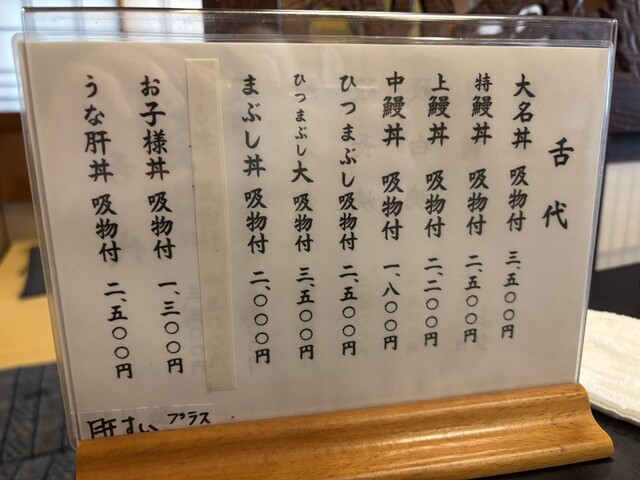 舌代
大名丼 吸物付 三、五〇〇円
特鰻丼 吸物付 二、五〇〇円
上鰻丼 吸物付 二、二〇〇円
中鰻丼 吸物付 一、八〇〇円
ひつまぶし吸物付 二、五〇〇円
ひつまぶし大 吸物付 三、五〇〇円
まぶし丼 吸物付 二、〇〇〇円
お子様丼 吸物付 一、三〇〇円
うな肝丼 吸物付 二、五〇〇円
肝すい プラス